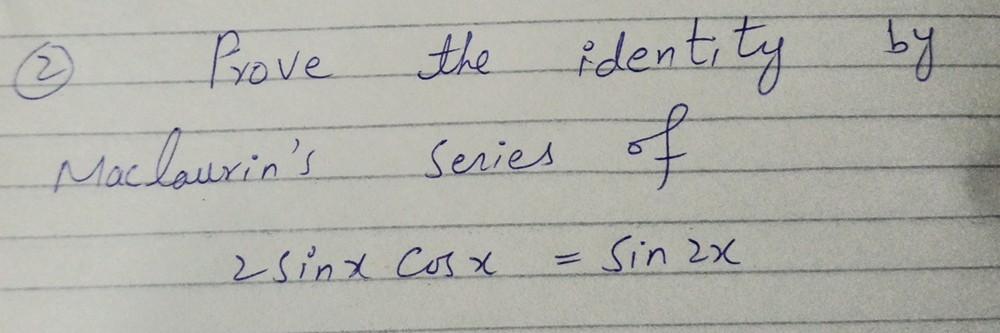 ② Prove the identity by
Maclaurin's series of
2 sin x cos x = sin 2x